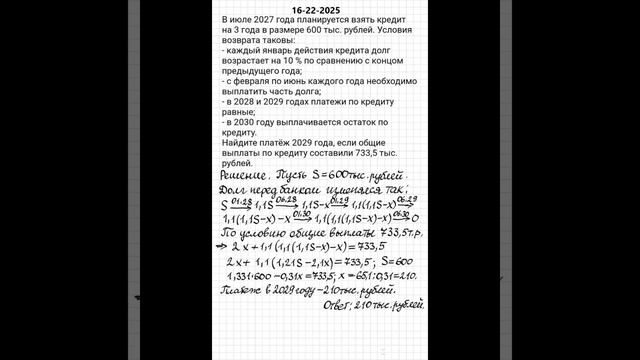 16-22-2025
В июле 2027 года планируется взять кредит
на 3 года в размере 600 тыс. рублей. Условия
возврата таковы:
- каждый январь действия кредита долг
возрастает на 10 % по сравнению с концом
предыдущего года;
- с февраля по июнь каждого года необходимо
выплатить часть долга;
- в 2028 и 2029 годах платежи по кредиту
равные;
- в 2030 году выплачивается остаток по
кредиту.
Найдите платёж 2029 года, если общие
выплаты по кредиту составили 733,5 тыс.
рублей.
Решение. Пусть S=600 тыс. рублей.
Долг перед банком изменялся так:
S 01.28→ 1,1S 06.28→ 1,1S-x 01.29→ 1,1(1,1S-x) 06.29→
1,1(1,1S-x)-x 01.30→ 1,1(1,1(1,1S-x)-x) 06.30→ 0
По условию общие выплаты 733,5 т.р.
⇒ 2x+1,1(1,1(1,1S-x)-x)=733,5
2x+1,1(1,21S-2,1x)=733,5; S=600
1,331·600-0,31x=733,5; x=65,1:0,31=210.
Платеж в 2029 году - 210 тыс. рублей.
Ответ: 210 тыс. рублей.